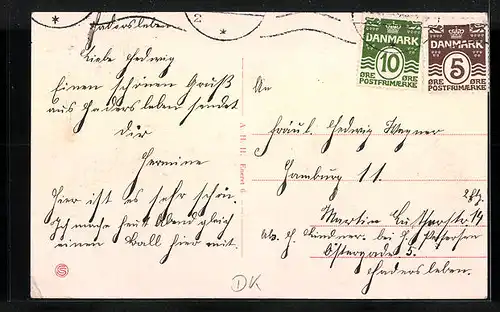 Hadersleben
2
Liebe Hedwig
Einen schönen Gruß
aus Hadersleben sendet
Dir
Hermine
Hier ist es sehr schön
Ich mache heut Abend gleich
einen Ball hier mit
A. H. H.
DK
DANMARK
10
ØRE ØRE
POSTFRIMÆRKE
DANMARK
5
ØRE ØRE
POSTFRIMÆRKE
An
Fräul. Hedwig Wegner
Hamburg 11.
Martin Lutherstr. 19
Abs. H. Lindner. bei
Östergade 5.
Hadersleben.